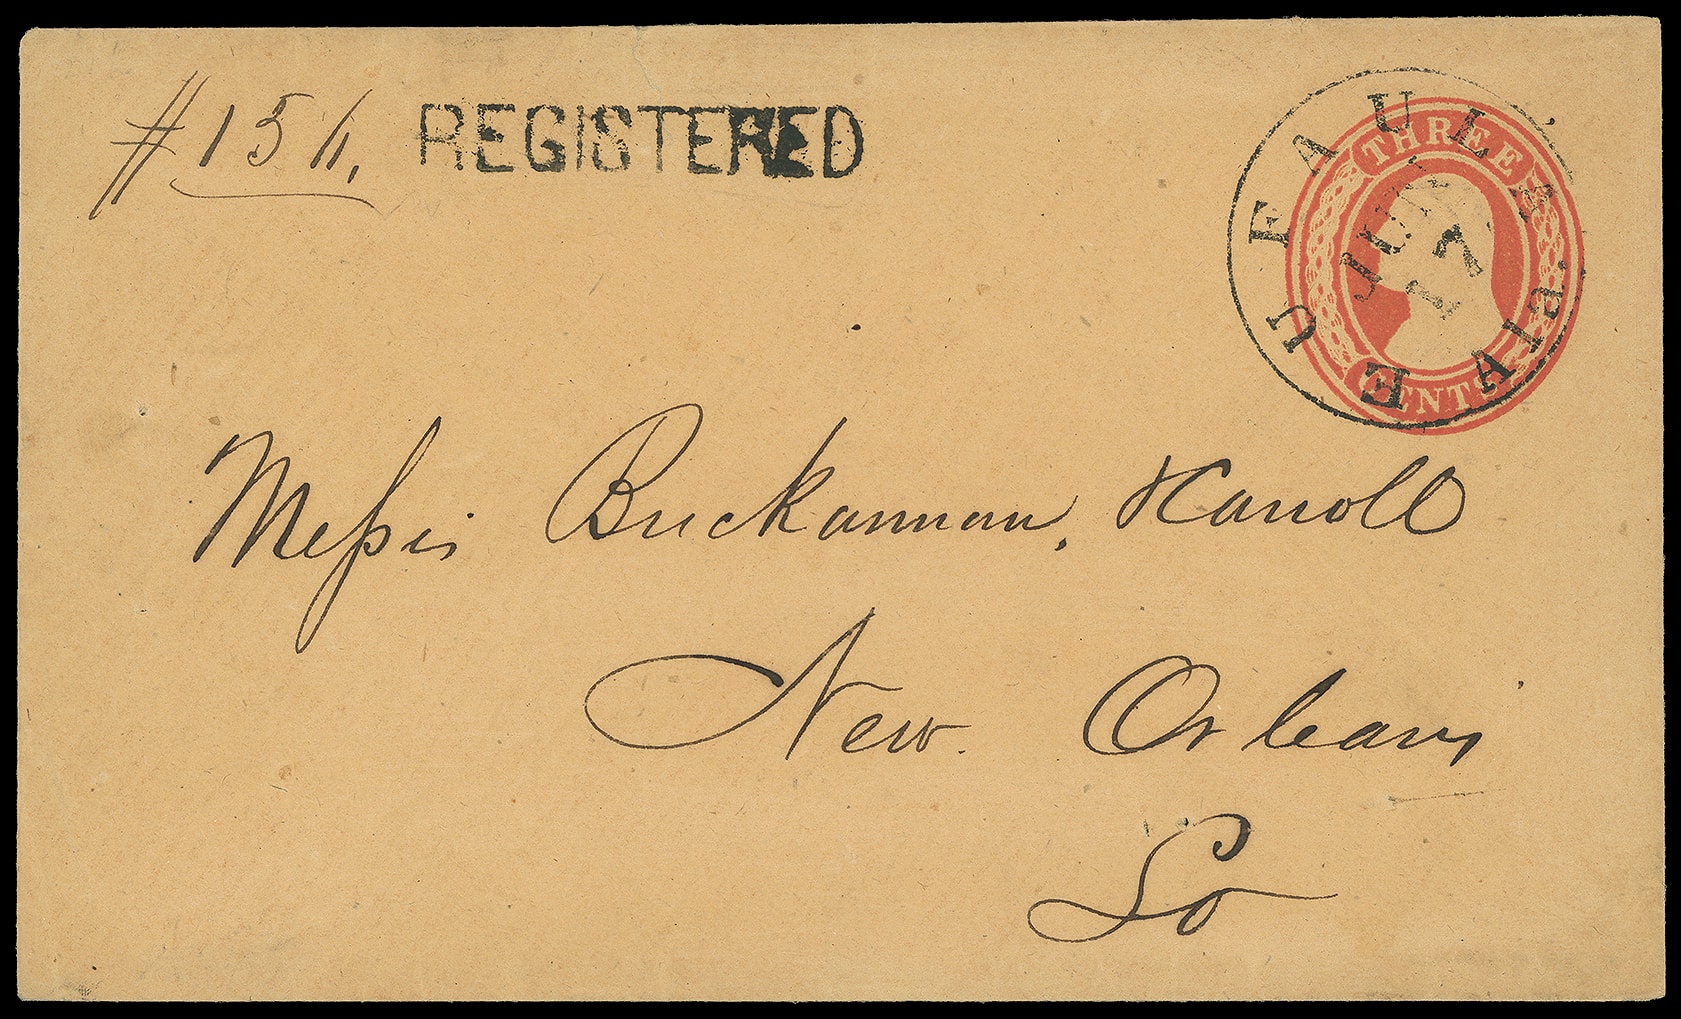 #154.
REGISTERED
EUFAULA Ala.
JUN
17
THREE
CENTS
Messrs Buckannan, Carroll
New Orleans
La